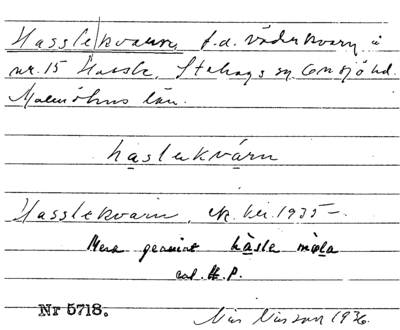 Hasslekvarn, f.d. väderkvarn å
nr. 15 Hassle, Stehags sn. Onsjö hd.
Malmöhus län.
haslekvárn
Hasslekvarn, ek. kar. 1935 –
Mera genuint hàsle mœla
enl. H. P.
Nr 5718.
Nils Nilsson 1936.